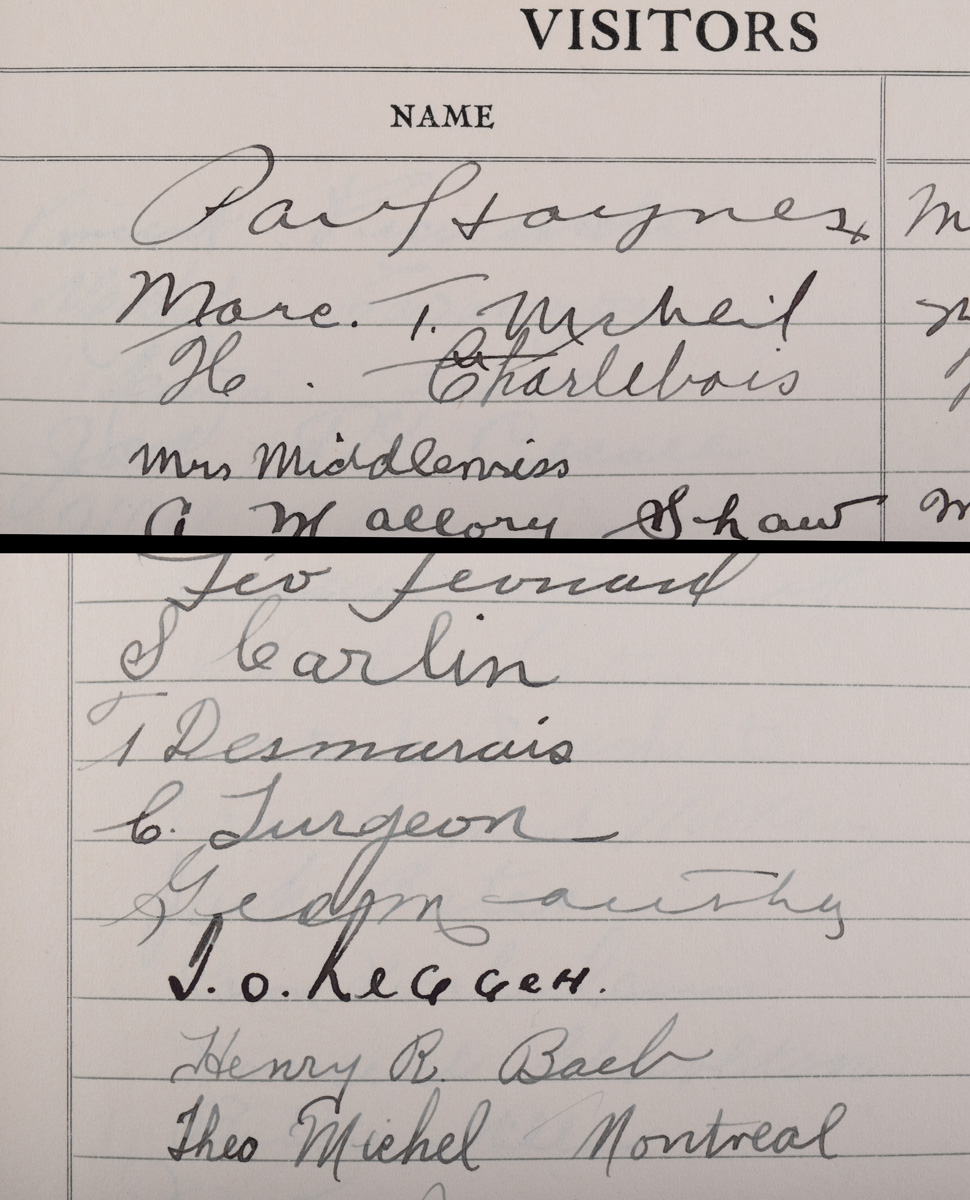 VISITORS
NAME
Paul Haynes
Marc. T. McNeil
H. Charlebois
Mrs Middlemiss
A Mallory Shaw
Geo Leonard
S Carlin
T Desmarais
C. Turgeon
Geo
J. O.
Henry R.
Theo Michel Montreal